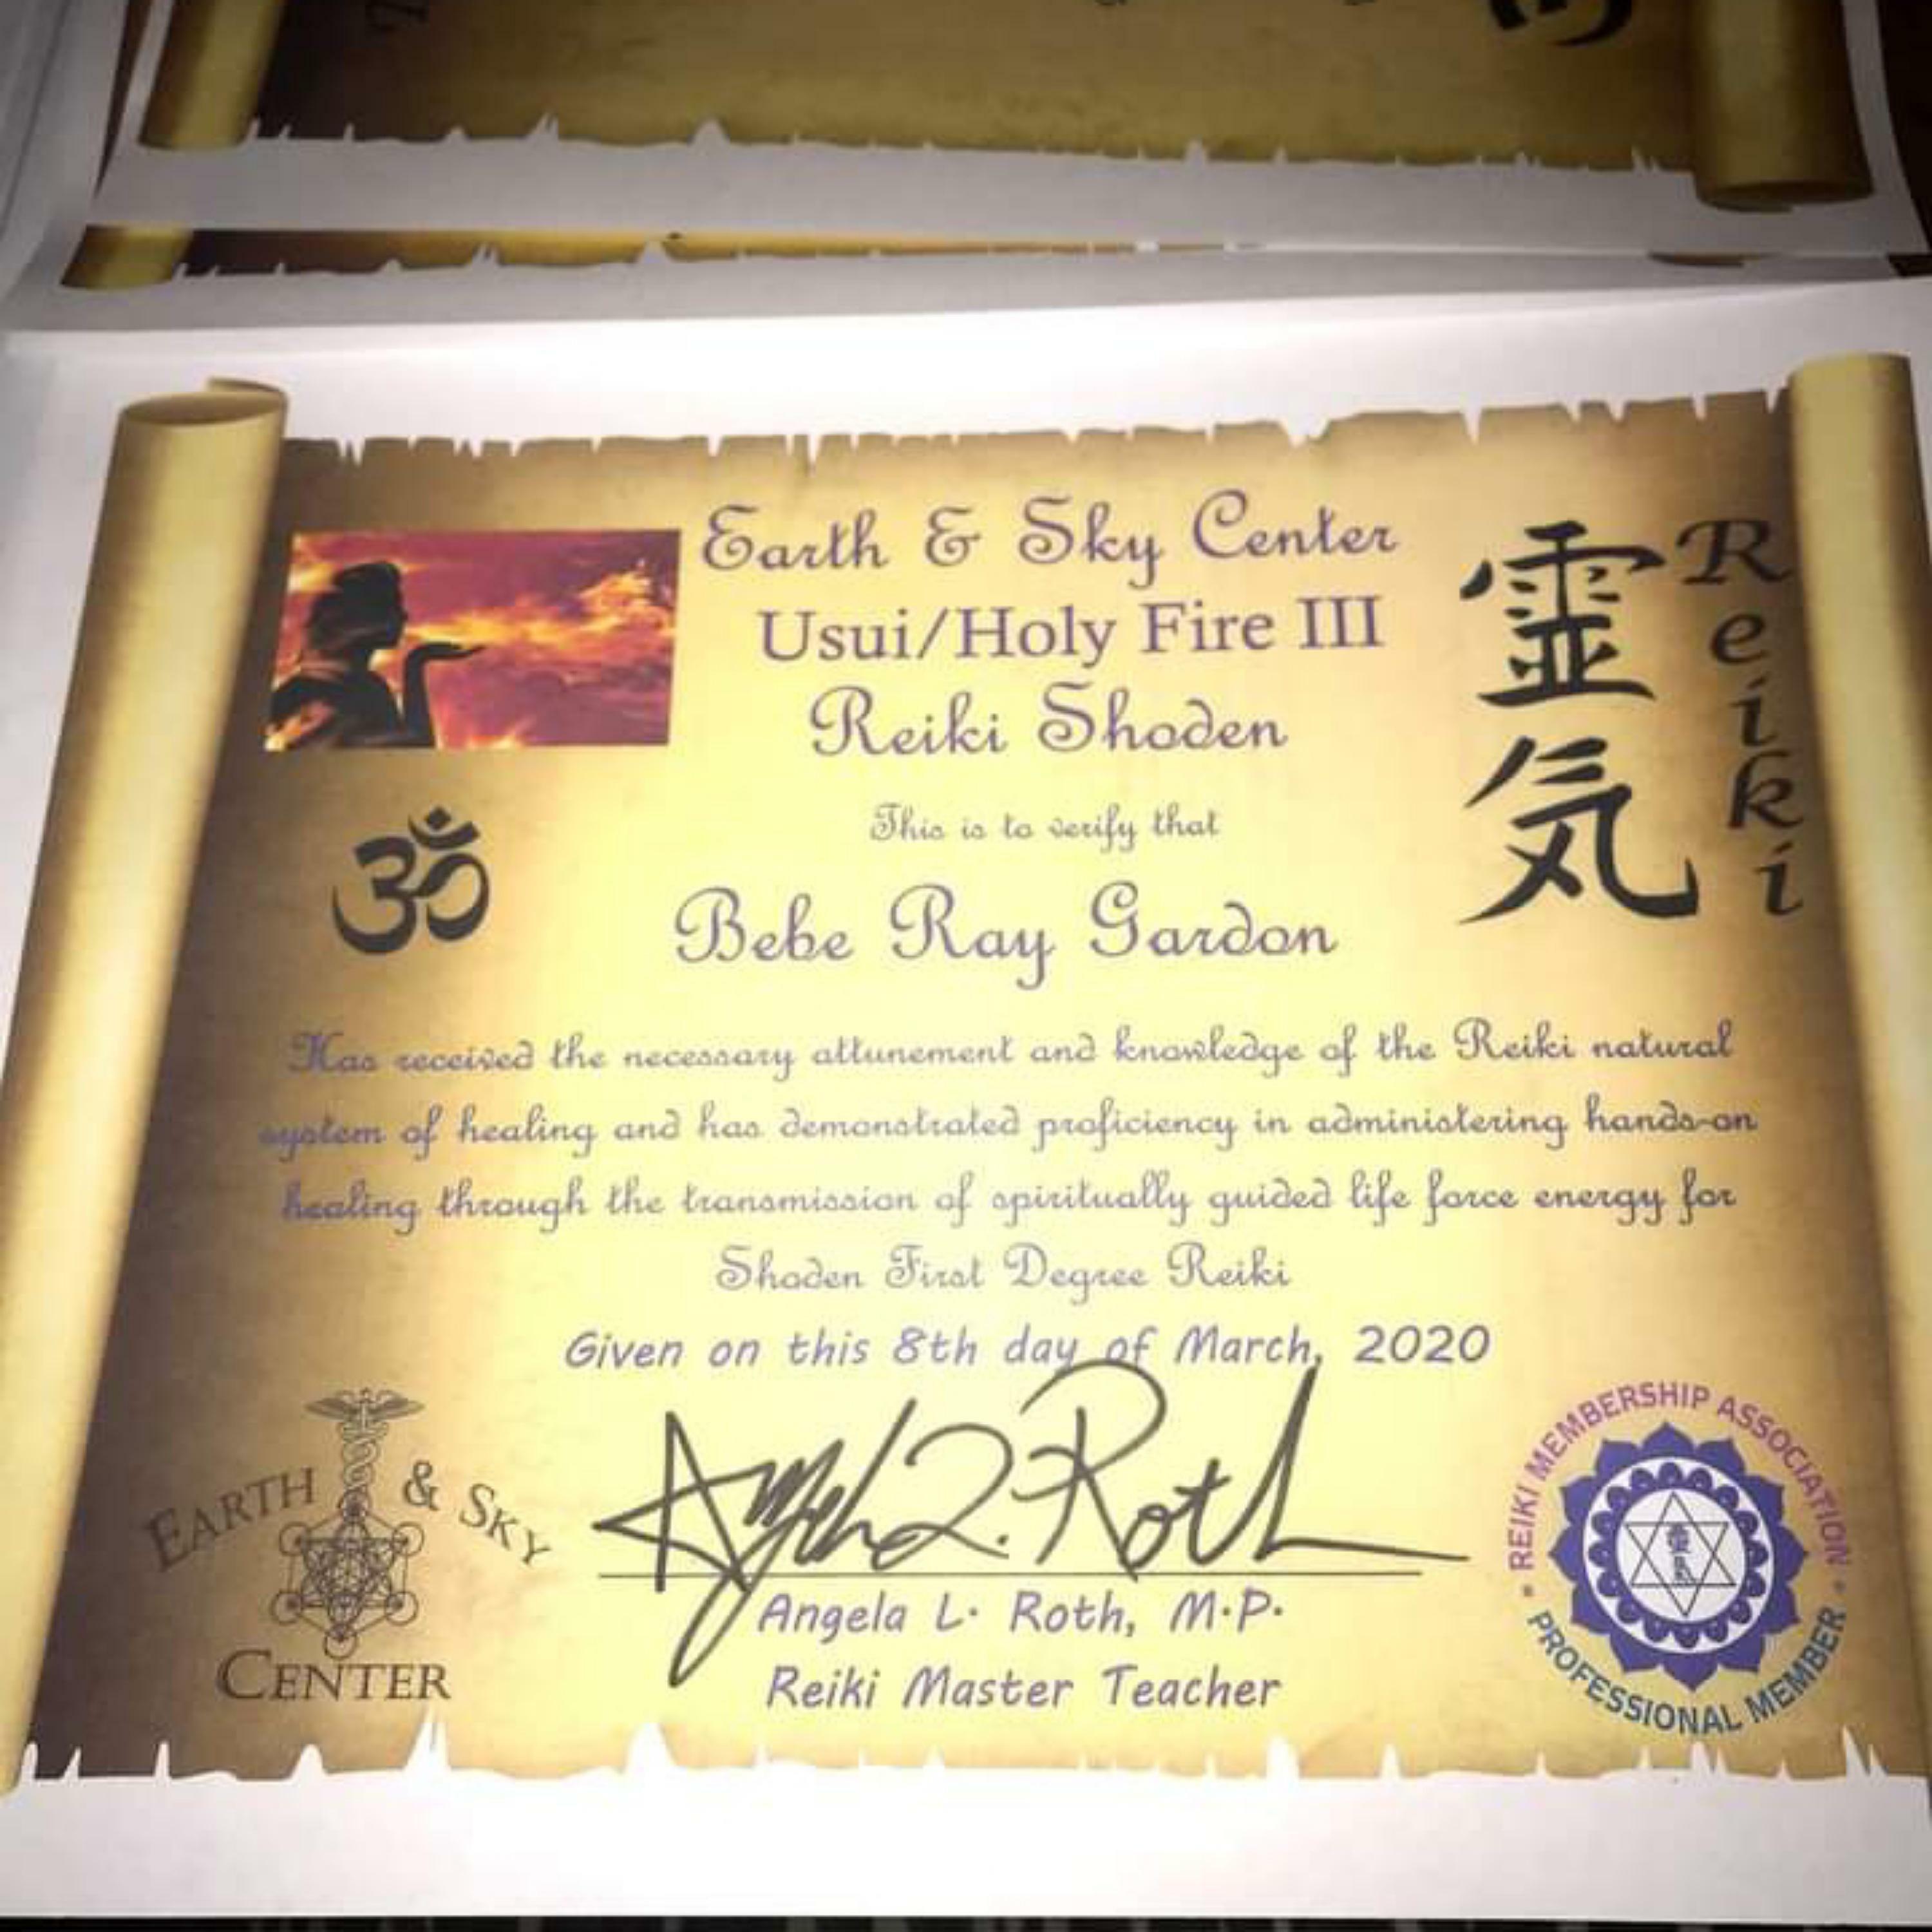 Earth & Sky Center
Usui/Holy Fire III
Reiki Shoden
靈気
Reiki
ॐ
This is to verify that
Bebe Ray Gardon
Has received the necessary attunement and knowledge of the Reiki natural
system of healing and has demonstrated proficiency in administering hands-on
healing through the transmission of spiritually guided life force energy for
Shoden First Degree Reiki
Given on this 8th day of March, 2020
Angela L. Roth
Angela L. Roth, M.P.
Reiki Master Teacher
EARTH & SKY
CENTER
REIKI MEMBERSHIP ASSOCIATION
PROFESSIONAL MEMBER
靈気